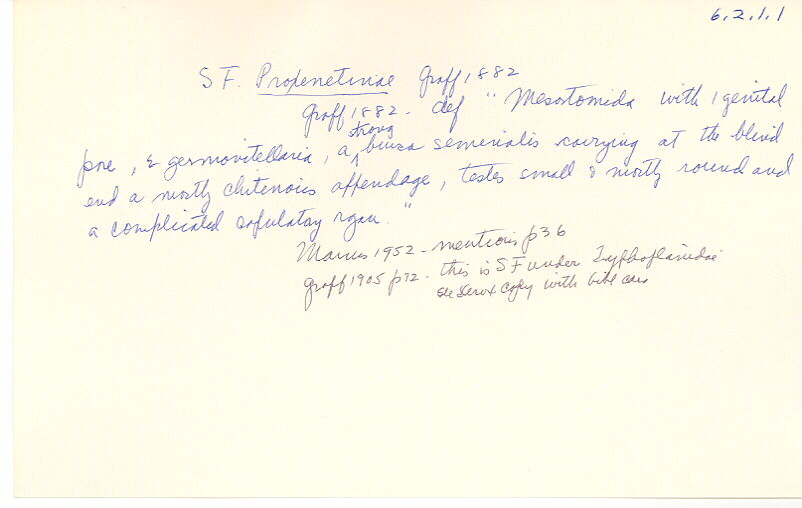 6.2.1.1
S F. Proxenetinae Graff, 1882
Graff 1882. def "Mesostomida with 1 genital
strong
pore, 2 germovitellaria, a bursa seminalis carrying at the blind
end a mostly chitenois appendage, testes small & mostly round and
a complicated copulatory rgan."
Marcus 1952 - mentions p36
Graff 1905 p72. this is SF under Typhloplanidae
see Xerox copy with bibl card